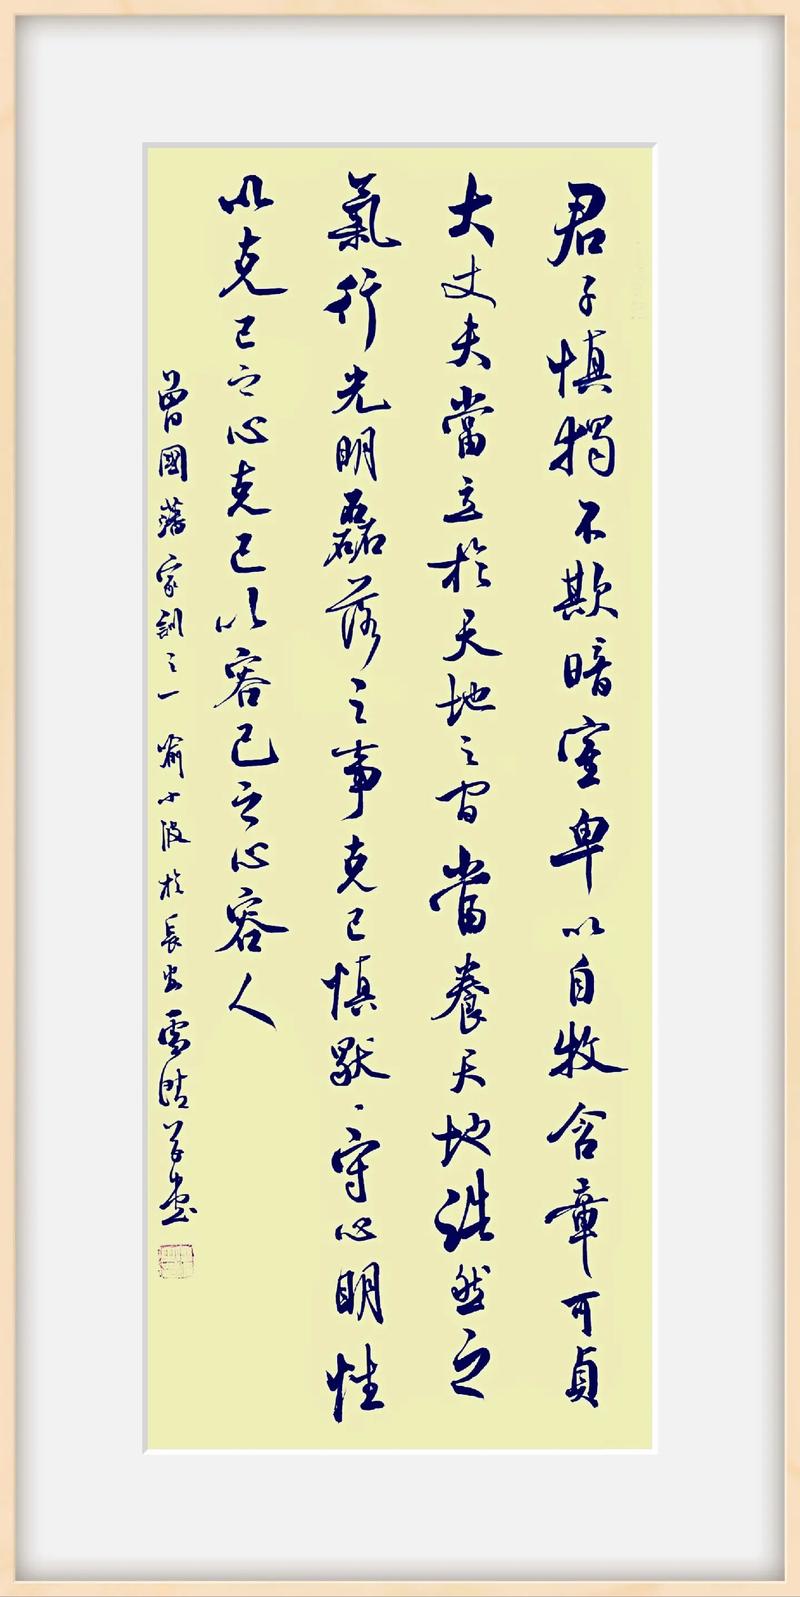 君子慎獨不欺暗室卑以自牧含章可貞
大丈夫當立於天地之間當養天地浩然之
氣行光明磊落之事克己慎默守心明性
以克己之心克己以容己之心容人
曾國藩家訓之一 俞小波於長安雪晴草堂